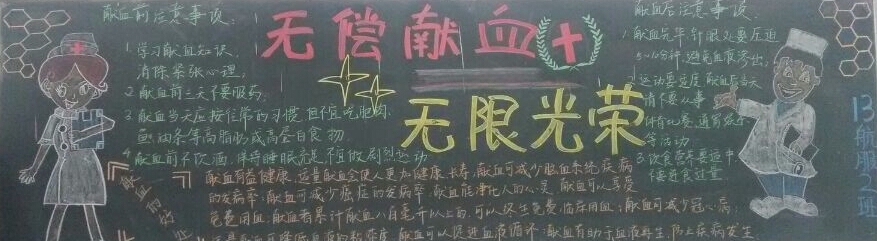 献血前注意事项:
1.学习献血知识,
消除紧张心理;
2.献血前三天不要服药;
3.献血当天应按往常的习惯,但不宜吃肥肉,
鱼,油条等高脂肪或高蛋白食物.
4.献血前不饮酒,保持睡眠充足,不宜做剧烈运动
无偿献血
无限光荣
献血后注意事项:
1.献血完毕,针眼处要压迫
5~10分钟,避免血液渗出;
2.运动要适度,献血后当天
请不要从事
体育比赛,通宵娱乐
等活动
3.饮食营养要适中
不要进食过量
13航服2班
献血的好处
献血有益健康,适量献血会使人更加健康长寿;献血可减少心脑血系统疾病
的发病率;献血可减少癌症的发病率;献血能净化人的心灵,献血可以享受
免费用血;献血者累计献血八百毫升以上的,可以终生免费临床用血;献血可减少冠心病;
献血可降低血液粘稠度,献血可以促进血液循环;献血有助于血液再生,防止疾病发生